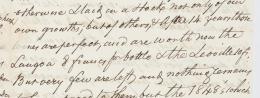 otherwise I lack in a stock not only of our
own growths, but of others, & after 14 years those
are perfect, and are worth now the
Langoa 8 francs p bottle & the Leoville 10 f.
But very few are left and nothing remains
to them but the 1848s which